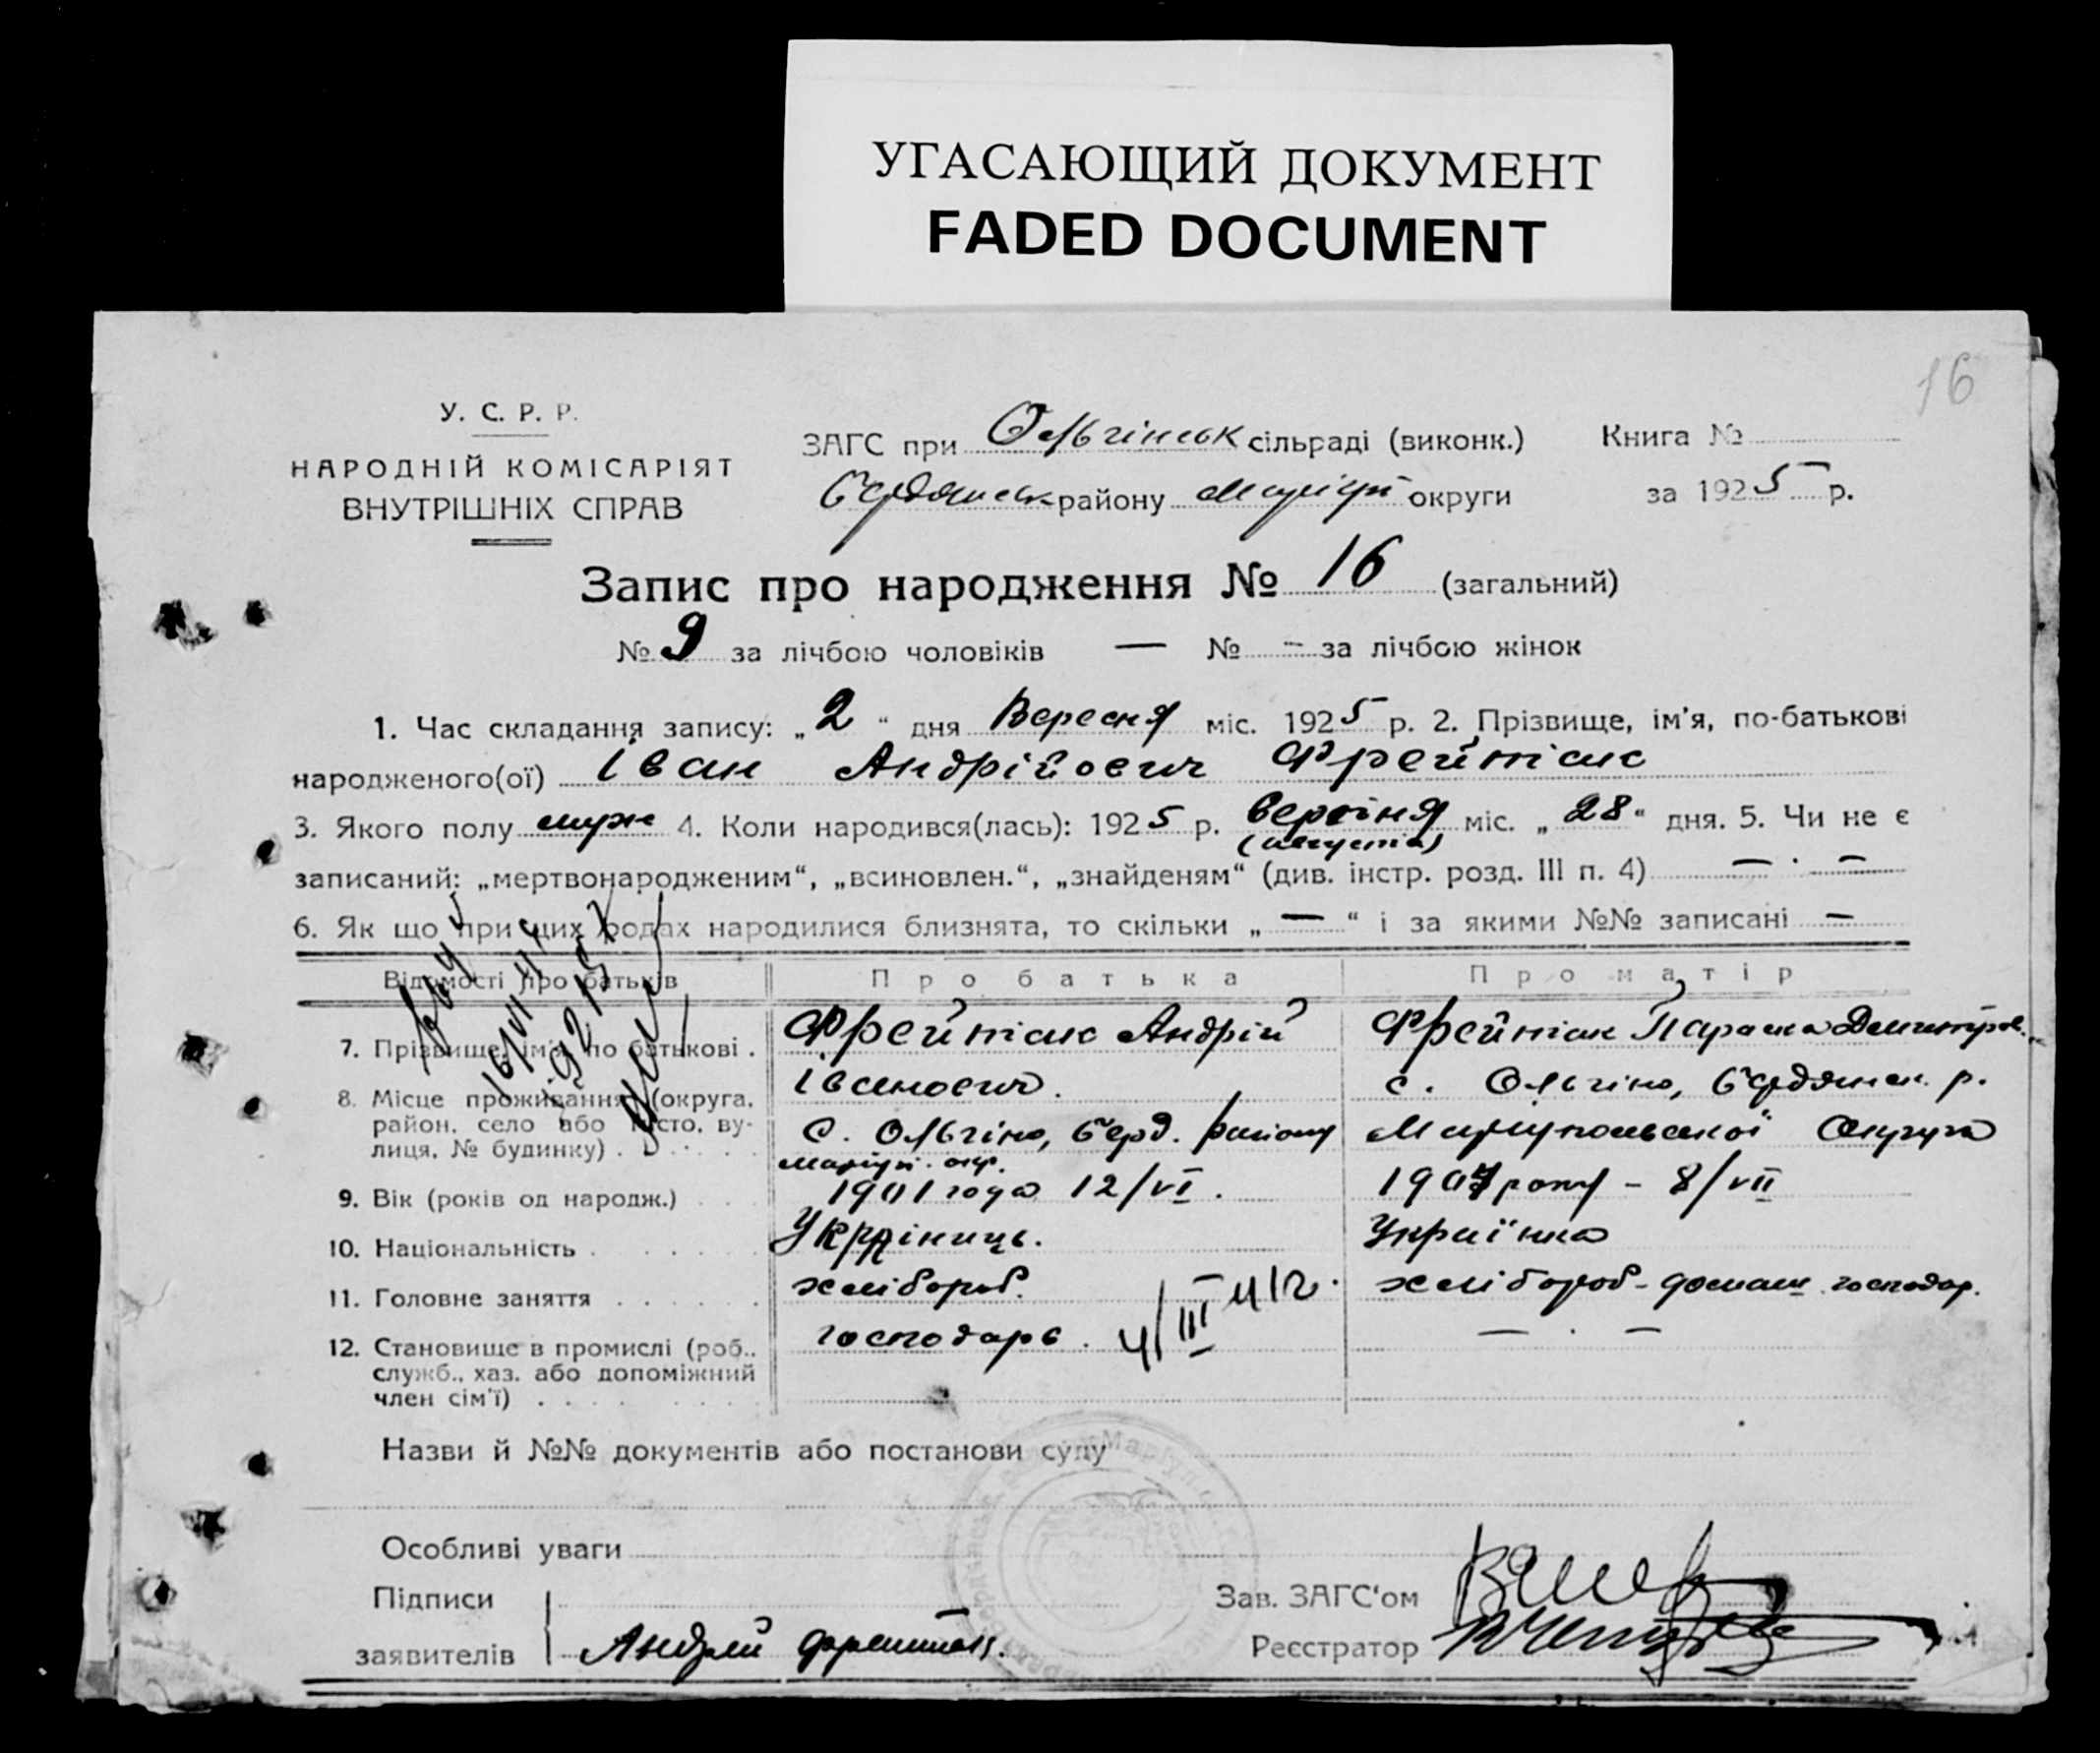 УГАСАЮЩИЙ ДОКУМЕНТ
FADED DOCUMENT
16
У. С. Р. Р.
НАРОДНІЙ КОМІСАРІЯТ
ВНУТРІШНІХ СПРАВ
ЗАГС при Ольгінськ сільраді (виконк.)
Бердянськ району Маріуп округи
Книга №
за 1925 р.
Запис про народження № 16 (загальний)
№ 9 за лічбою чоловіків — № - за лічбою жінок
1. Час складання запису: „2“ дня Вересня міс. 1925 р. 2. Прізвище, ім'я, по-батькові
народженого(ої) Іван Андрійович Фрейтіак
3. Якого полу муж 4. Коли народився(лась): 1925 р. версіня міс. „28“ дня. 5. Чи не є
(августа)
записаний: „мертвонародженим“, „всиновлен.“, „знайденям“ (див. інстр. розд. III п. 4) — · —
6. Як що при цих родах народилися близнята, то скільки „—“ і за якими №№ записані —
Відомості про батьків
Про батька
Про матір
7. Прізвище, ім'я, по батькові .
Фрейтіак Андрій
Івсанович.
Фрейтіак Параска Демитров.
8. Місце проживання (округа,
район, село або місто, ву-
лиця, № будинку) .
с. Ольгіно, Берд. району
Маріуп. окр.
с. Ольгіно, Бердянск. р.
Маріупольської Округа
9. Вік (років од народж.)
1901 года 12/VI.
1907 року - 8/VII
10. Національність
Украіниць.
Українка
11. Головне заняття
хлібороб.
хлібороб-домаш. господар.
12. Становище в промислі (роб.,
служб., хаз. або допоміжний
член сім'ї)
господарь.
4/III 41г.
— . —
Назви й №№ документів або постанови суду
Особливі уваги
Підписи
заявителів
Андрей Фрейтіак.
Зав. ЗАГС'ом
Реєстратор